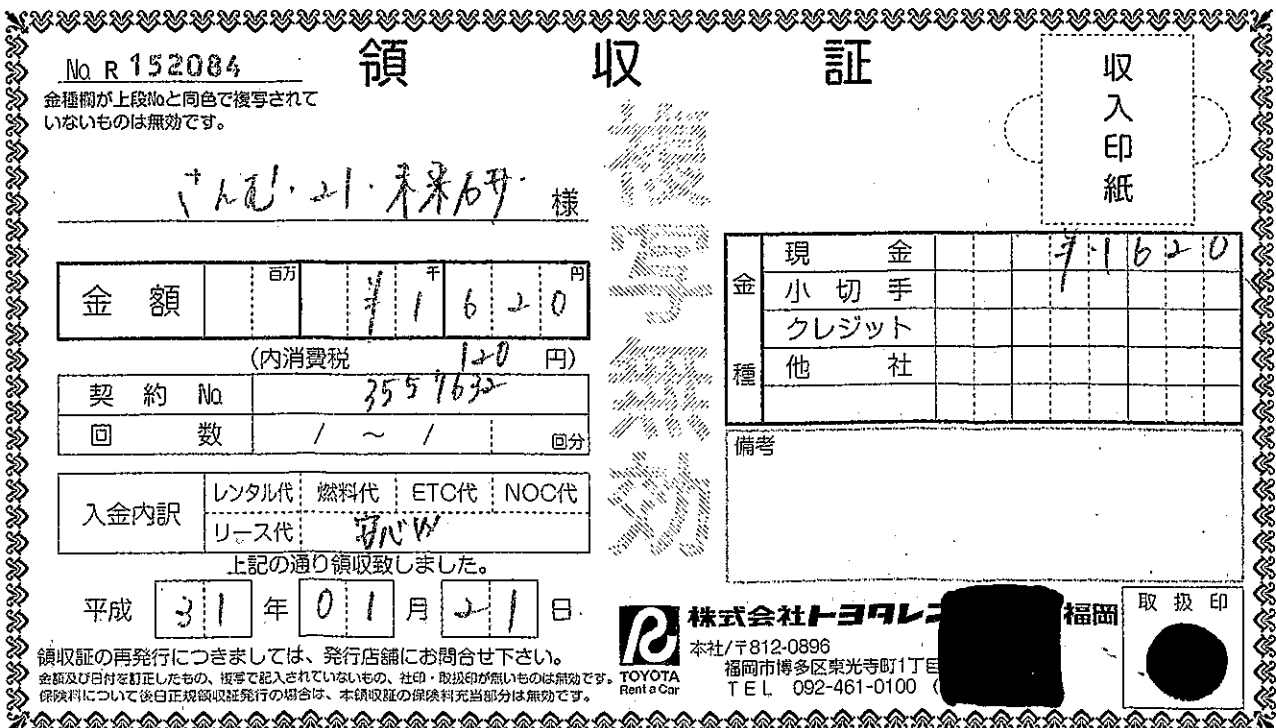 領収証
No. R 152084
金種欄が上段Noと同色で複写されて
いないものは無効です。
収入印紙
さんむ・21・未来研 様
複写無効
金額 百万 千 円 ¥1620
(内消費税 120 円)
契約No. 3557632
回数 1 ~ 1 回分
入金内訳 レンタル代 燃料代 ETC代 NOC代
リース代 安心W
上記の通り領収致しました。
平成 31 年 01 月 21 日
金種
現金 ¥1620
小切手
クレジット
他社
備考
領収証の再発行につきましては、発行店舗にお問合せ下さい。
金額及び日付を訂正したもの、複写で記入されていないもの、社印・取扱印が無いものは無効です。
保険料について後日正規領収証発行の場合は、本領収証の保険料充当部分は無効です。
R
TOYOTA
Rent a Car
株式会社トヨタレン 福岡
本社/〒812-0896
福岡市博多区東光寺町1丁目
TEL 092-461-0100 (
取扱印